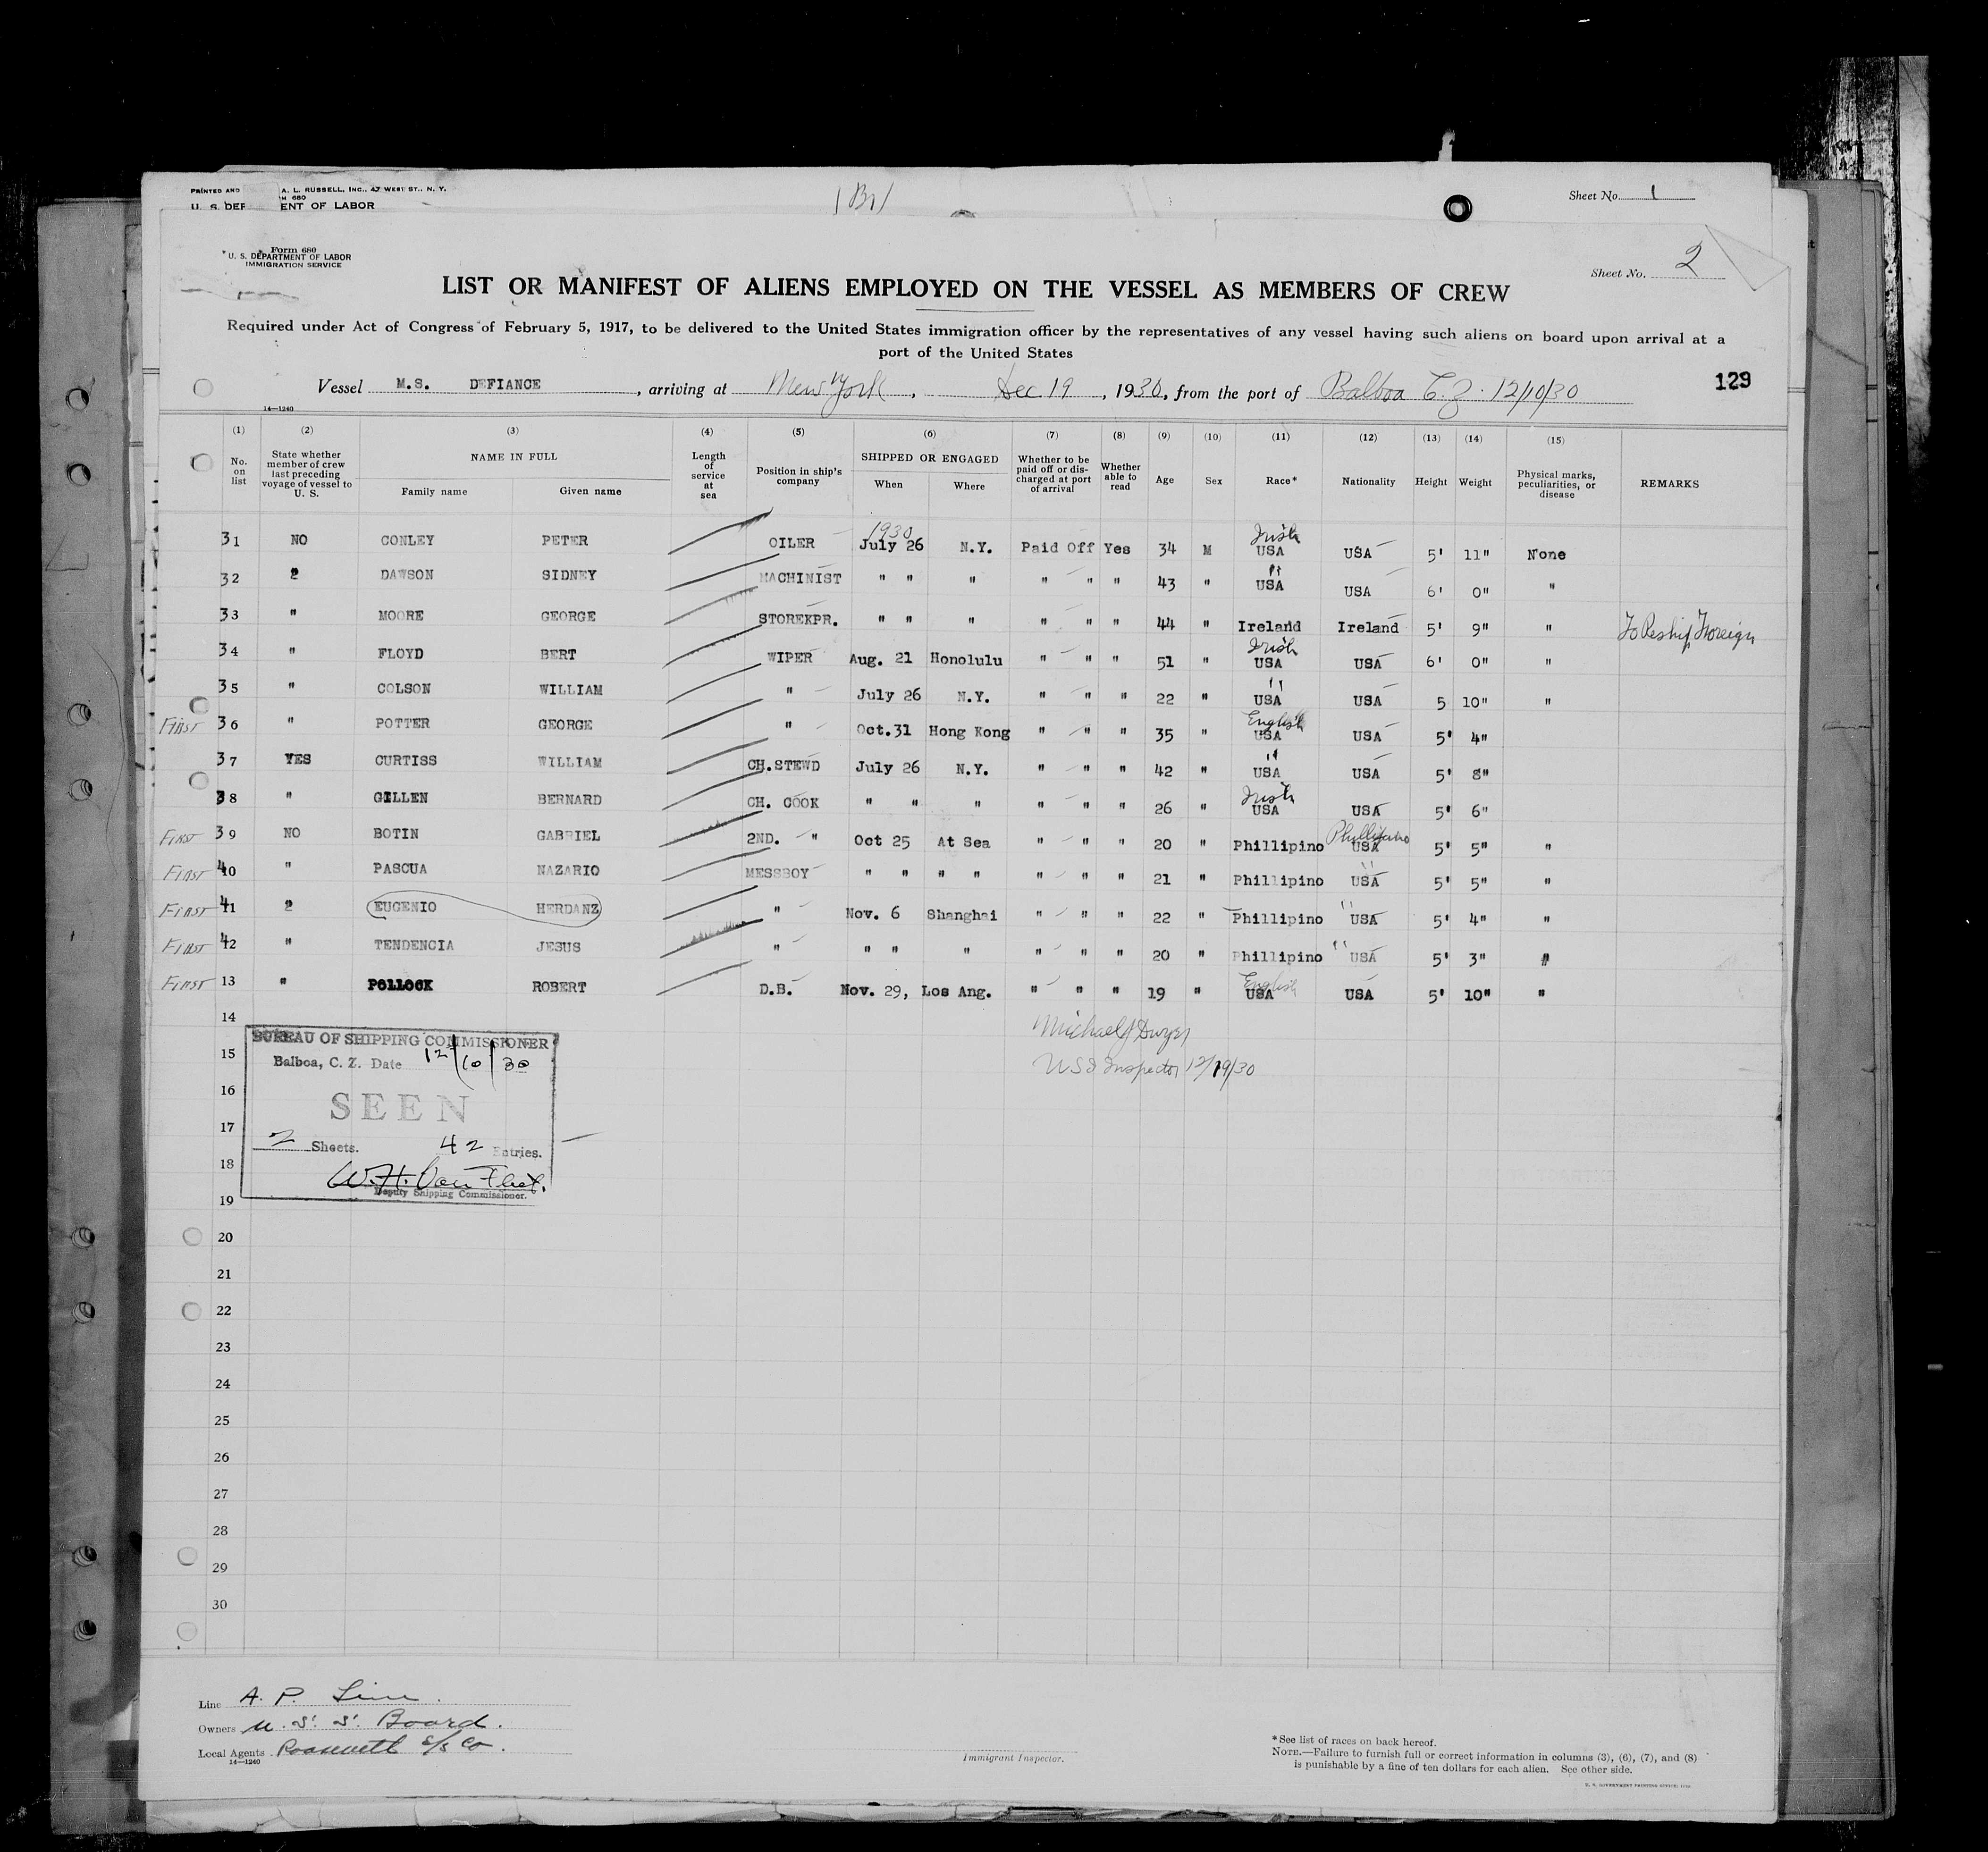 PRINTED AND A. L. RUSSELL, INC., 47 WEST ST., N. Y.
M 680
U. S. DEP ENT OF LABOR
Sheet No. 1
Form 680
U. S. DEPARTMENT OF LABOR
IMMIGRATION SERVICE
Sheet No. 2
LIST OR MANIFEST OF ALIENS EMPLOYED ON THE VESSEL AS MEMBERS OF CREW
Required under Act of Congress of February 5, 1917, to be delivered to the United States immigration officer by the representatives of any vessel having such aliens on board upon arrival at a
port of the United States
Vessel M.S. DEFIANCE, arriving at New York, Dec 19, 1930, from the port of Balboa C.Z. 12/10/30
129
14—1240
(1) (2) (3) (4) (5) (6) (7) (8) (9) (10) (11) (12) (13) (14) (15)
No. on list
State whether member of crew last preceding voyage of vessel to U. S.
NAME IN FULL
Family name Given name
Length of service at sea
Position in ship's company
SHIPPED OR ENGAGED
When Where
Whether to be paid off or discharged at port of arrival
Whether able to read
Age Sex Race* Nationality Height Weight
Physical marks, peculiarities, or disease
REMARKS
1930 Irish
31 NO CONLEY PETER OILER July 26 N.Y. Paid Off Yes 34 M USA USA 5' 11" None
32 2 DAWSON SIDNEY MACHINIST " " " " " " 43 " " USA USA 6' 0" "
33 " MOORE GEORGE STOREKPR. " " " " " " 44 " Ireland Ireland 5' 9" " To Reship Foreign
Irish
34 " FLOYD BERT WIPER Aug. 21 Honolulu " " " 51 " USA USA 6' 0" "
35 " COLSON WILLIAM " July 26 N.Y. " " " 22 " " USA USA 5 10" "
English
First 36 " POTTER GEORGE " Oct.31 Hong Kong " " " 35 " USA USA 5' 4"
37 YES CURTISS WILLIAM CH.STEWD July 26 N.Y. " " " 42 " " USA USA 5' 8"
Irish
38 " GILLEN BERNARD CH. COOK " " " " " " 26 " USA USA 5' 6"
Phillipino
First 39 NO BOTIN GABRIEL 2ND. " Oct 25 At Sea " " " 20 " Phillipino USA 5' 5" "
First 40 " PASCUA NAZARIO MESSBOY " " " " " " " 21 " Phillipino " USA 5' 5" "
First 41 2 EUGENIO HERDANZ " Nov. 6 Shanghai " " " 22 " Phillipino " USA 5' 4" "
First 42 " TENDENCIA JESUS " " " " " " " 20 " Phillipino " USA 5' 3" "
English
First 13 " POLLOCK ROBERT D.B. Nov. 29, Los Ang. " " " 19 " USA USA 5' 10" "
14
15
16
17
18
19
20
21
22
23
24
25
26
27
28
29
30
Michael J Dwyer
US Inspector 12/19/30
BUREAU OF SHIPPING COMMISSIONER
Balboa, C. Z. Date 12/10/30
SEEN
2 Sheets. 42 Entries.
W.H. Van Fleet.
Deputy Shipping Commissioner.
Line A. P. Line.
Owners U. S. S. Board.
Local Agents Roosevelt S/S Co.
14—1240
Immigrant Inspector.
*See list of races on back hereof.
NOTE.—Failure to furnish full or correct information in columns (3), (6), (7), and (8)
is punishable by a fine of ten dollars for each alien. See other side.